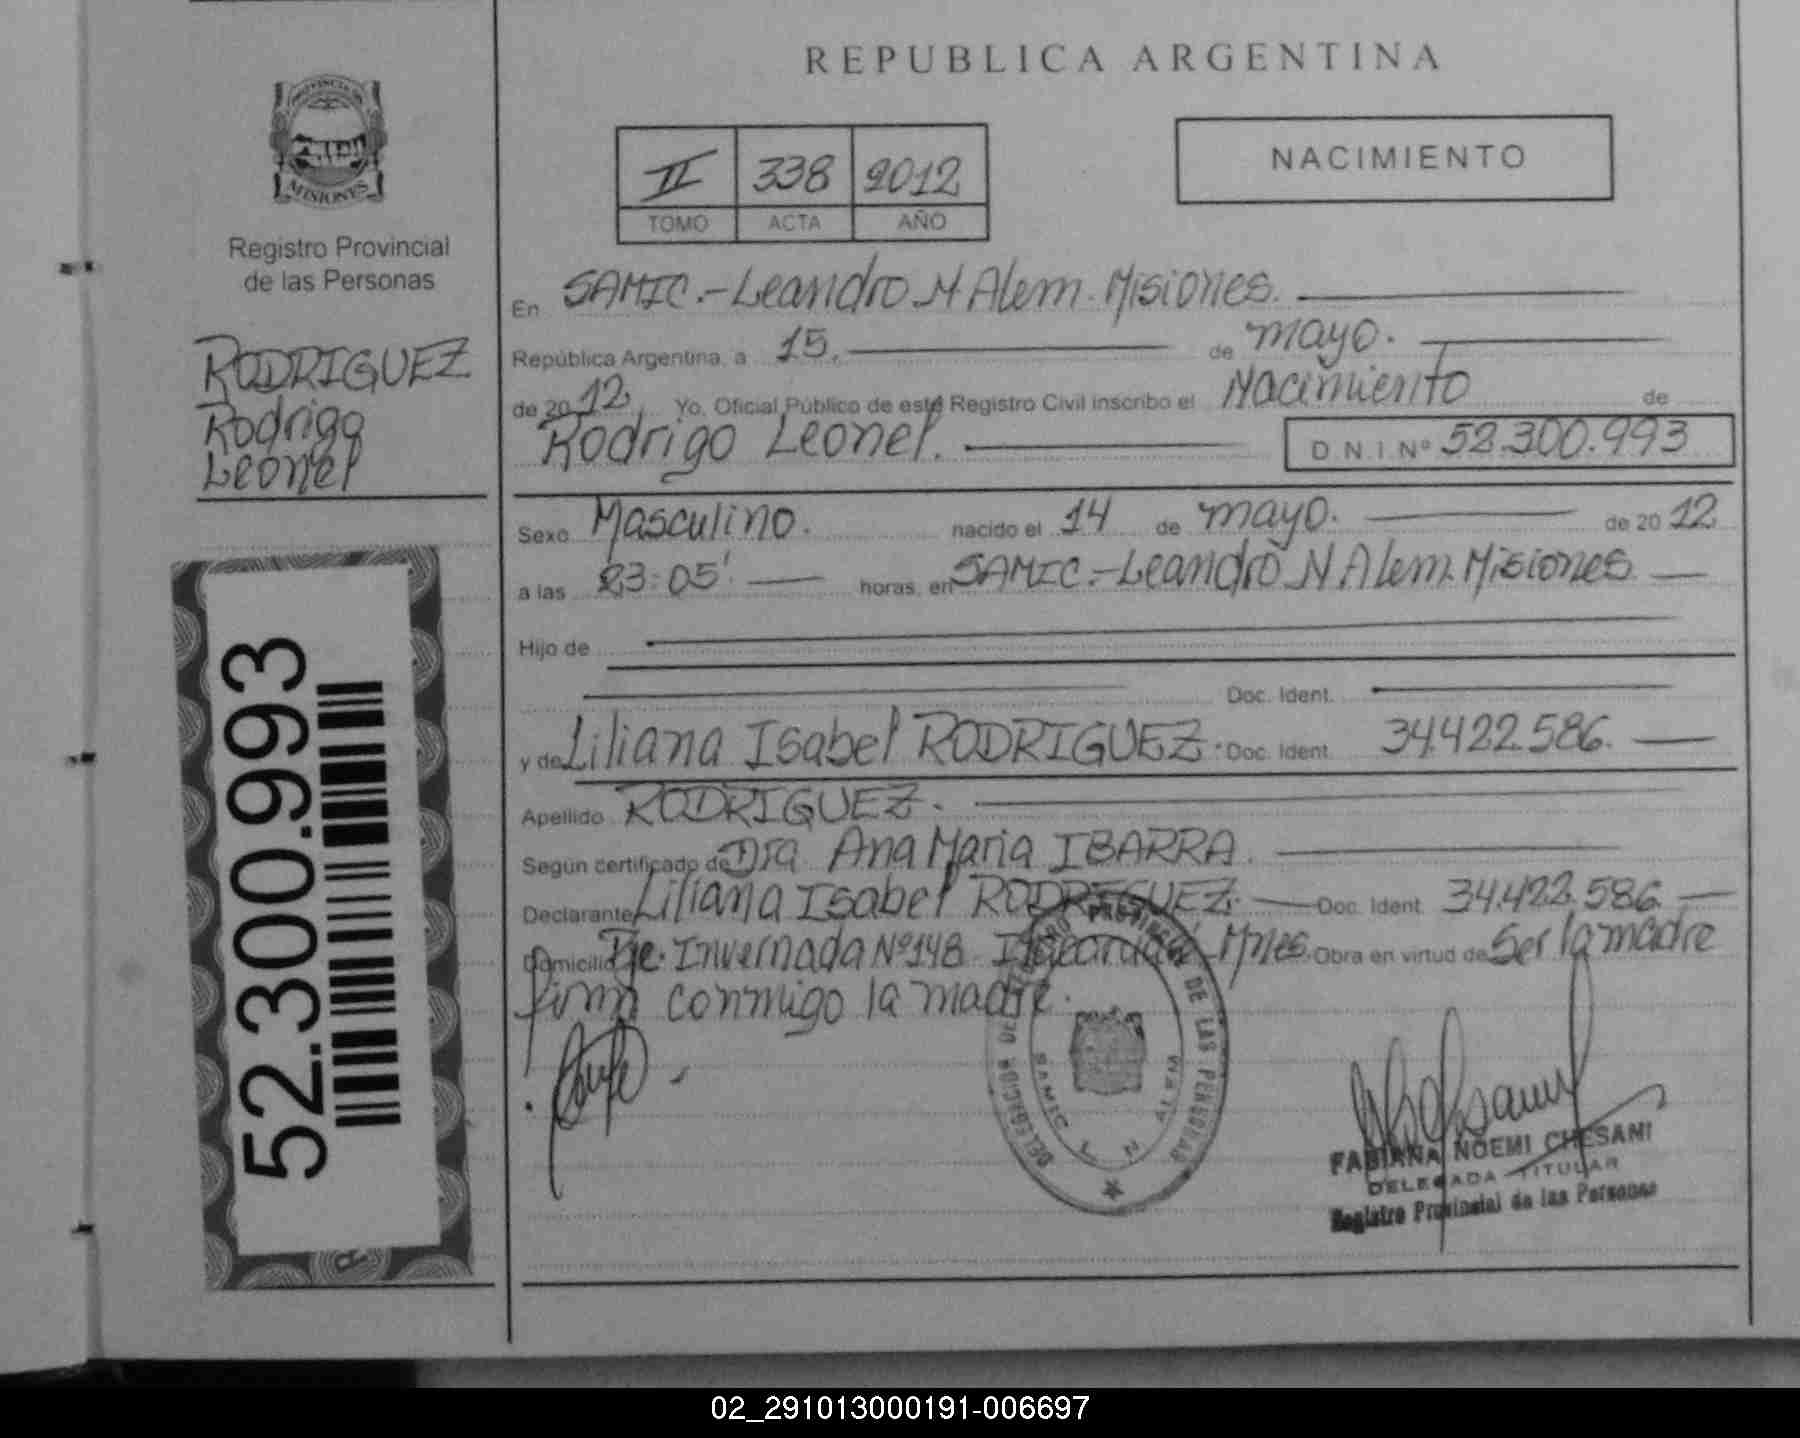 REPUBLICA ARGENTINA
PROVINCIA DE
MISIONES
Registro Provincial
de las Personas
RODRIGUEZ
Rodrigo
Leonel
52.300.993
II 338 2012
TOMO ACTA AÑO
NACIMIENTO
En SAMIC.-Leandro N Alem. Misiones.
República Argentina, a 15. de mayo.
de 2012, Yo, Oficial Público de este Registro Civil inscribo el Nacimiento de
Rodrigo Leonel. D.N.I.Nº 52.300.993
Sexo Masculino. nacido el 14 de mayo. de 2012
a las 23:05' horas, en SAMIC.-Leandro N Alem. Misiones
Hijo de
Doc. Ident.
y de Liliana Isabel RODRIGUEZ. Doc. Ident. 34.422.586.
Apellido RODRIGUEZ.
Según certificado de Dra Ana Maria IBARRA.
Declarante Liliana Isabel RODRIGUEZ. Doc. Ident. 34.422.586
Domicilio Pje. Invernada Nº148 Mnes. Obra en virtud de Ser la madre
firma conmigo la madre.
DELEGACION DE PROVINCIAL DE LAS PERSONAS
SAMIC L N ALEM
FABIANA NOEMI CHESANI
DELEGADA TITULAR
Registro Provincial de las Personas
02_291013000191-006697